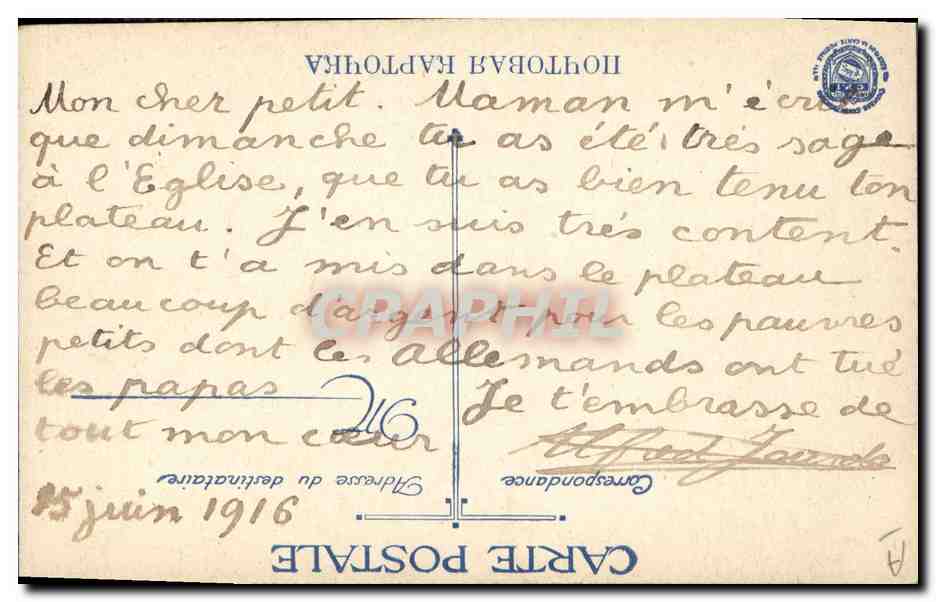 ПОЧТОВАЯ КАРТОЧКА
Mon cher petit. Maman m'écrit
que dimanche tu as été très sage
à l'Église, que tu as bien tenu ton
plateau. J'en suis très content.
Et on t'a mis dans le plateau
beaucoup d'argent pour les pauvres
petits dont les Allemands ont tué
les papas Je t'embrasse de
tout mon cœur
Alfred
Correspondance
Adresse du destinataire
M
15 juin 1916
CARTE POSTALE
CPAPHIL
A